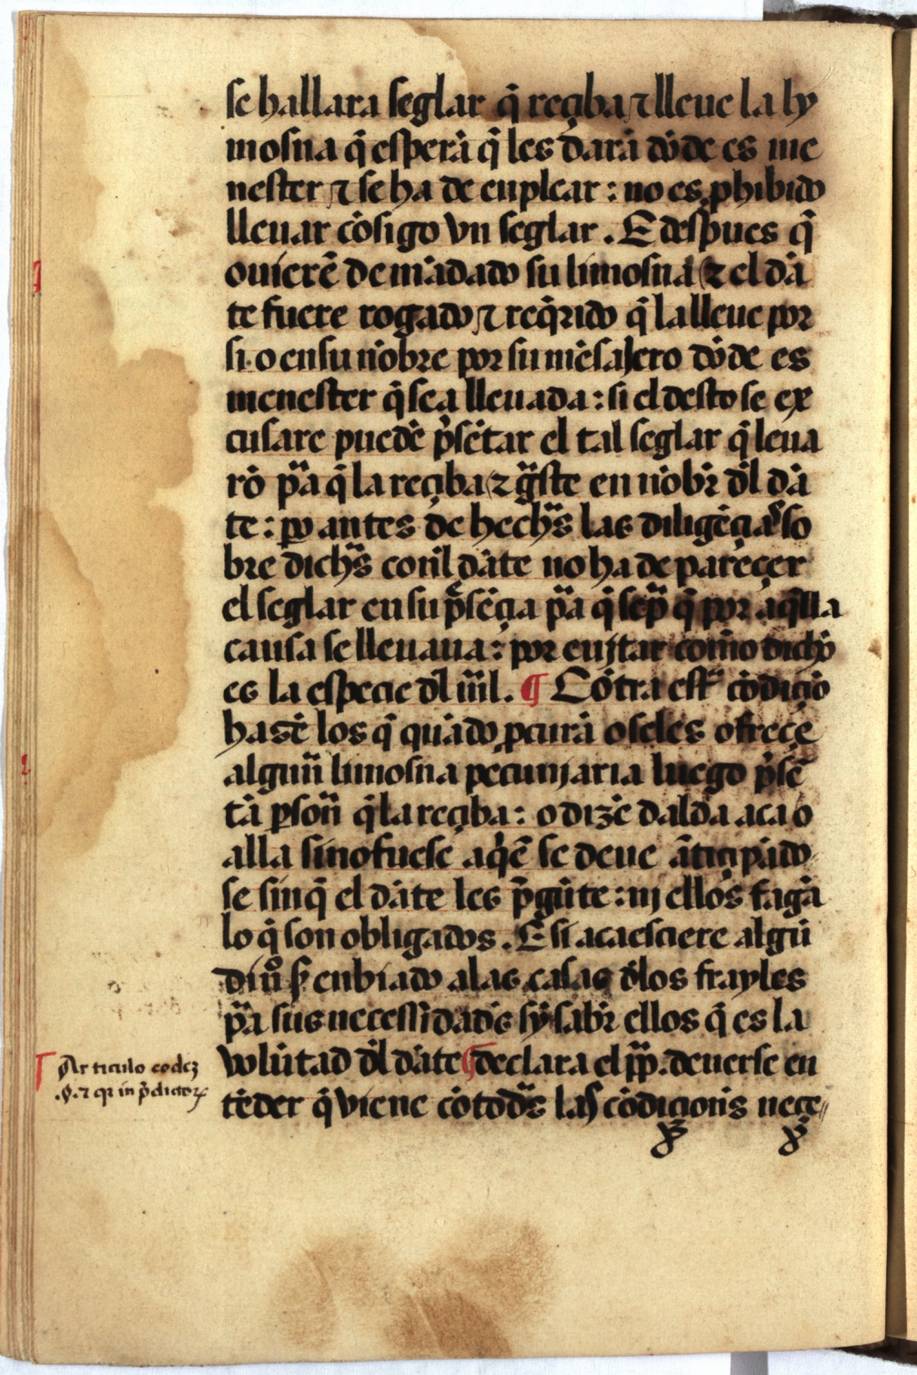 se hallara seglar q̃ reçiba ⁊ lleue la ly
mosna q̃ esperã q̃ les darã dõde es me
nester ⁊ se ha de enplear : no es ꝓhibido
lleuar cõsigo vn seglar . E despues q̃
ouierẽ demãdado su limosna ⁊ el dã
te fuere rogado ⁊ req̃rido q̃ la lleue por
si . o en su nõbre por su mẽsajero dõde es
menester q̃ sea lleuada : si el desto se ex
cusare puedẽ p̃sẽtar el tal seglar q̃ leua
rõ pã q̃ la reçiba ⁊ g̃ste en nõbr̃ dl̃ dã
te : ꝑo antes de hechs̃ las diligẽçias so
bre dichs̃ conl dãte no ha de pareçer
el seglar en su p̃sẽçia pã q̃ sep̃ q̃ por aq̃lla
causa se lleuaua : por euitar como dicho
es la especie dl̃ mil̃ . ¶ Cõtra est̃ cõdiçiõ
hazẽ los q̃ quãdo ꝓcurã o seles ofreçe
algun̄ limosna pecunjaria luego p̃sẽ
tã ꝑson̄ q̃ la reçiba : o dizẽ dalda aca o
alla sino fuese aq̃ẽ se deue ãtiçipãdo
se sinq̃ el dãte les p̃gũte : nj ellos fagã
lo q̃ son obligados . E si acaesciere algũ
diño s̃ enbiado alas casas dlõs frayles
pã sus necessidads̃ sy̾ sabr̃ ellos q̃ es la
volũtad dl̃ dãte ¶ declara el pp̃ . deuerse en
Articulo codez
tẽder q̃ viene cõ tods̃ las cõdiçions̃ neçe